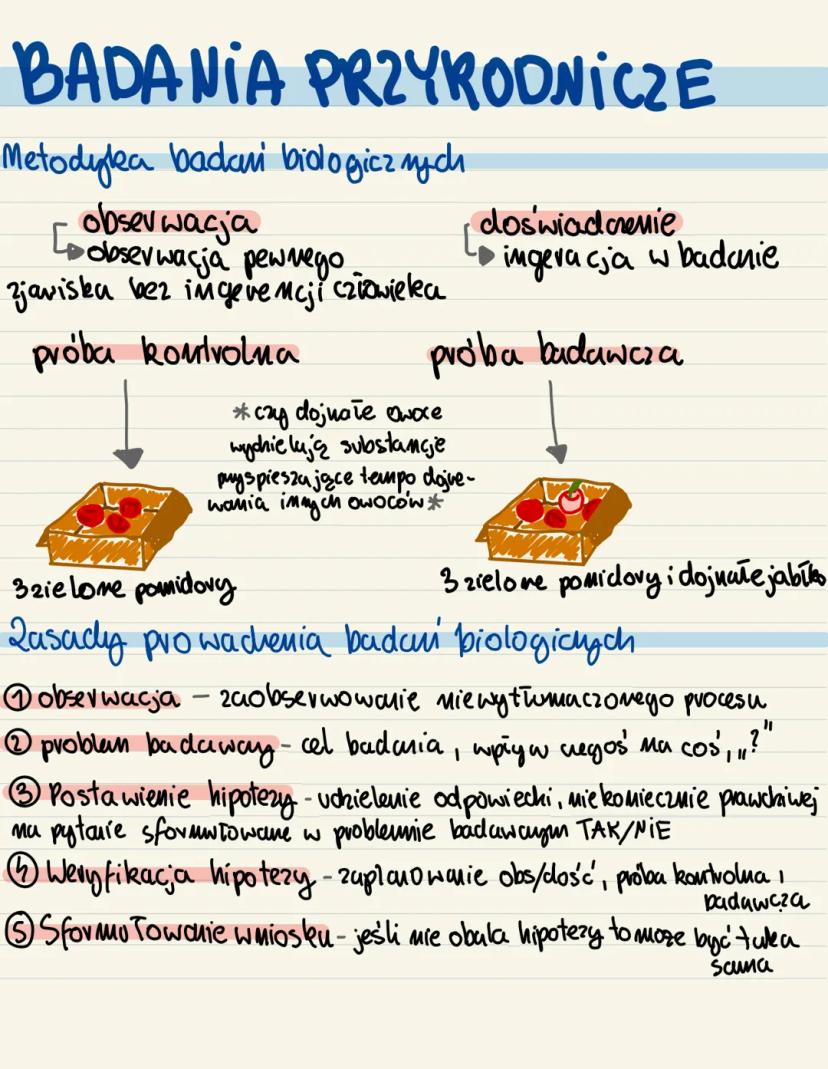 BADANIA PRZYRODNICZE
Metodyka badań biologicznych
obserwacja
obserwacja pewnego
zjawiska bez ingerencji człowieka
doświadczenie
ingeracja w badanie
próba kontrolna
próba badawcza
*czy dojrzałe owoce
wydzielują substancje
przyspieszające tempo dojrze-
wania innych owoców*
3 zielone pomidory
3 zielone pomidory i dojrzałe jabłko
Zasady prowadzenia badań biologicznych
① obserwacja – zaobserwowanie niewytłumaczonego procesu
② problem badawczy - cel badania, wpływ czegoś na coś, „?"
③ Postawienie hipotezy - udzielenie odpowiedzi, niekoniecznie prawdziwej
na pytanie sformułowane w problemie badawczym TAK/NIE
④ Weryfikacja hipotezy - zaplanowanie obs/dość, próba kontrolna i
badawcza
⑤ Sformułowanie wniosku - jeśli nie obala hipotezy to może być taka
sama